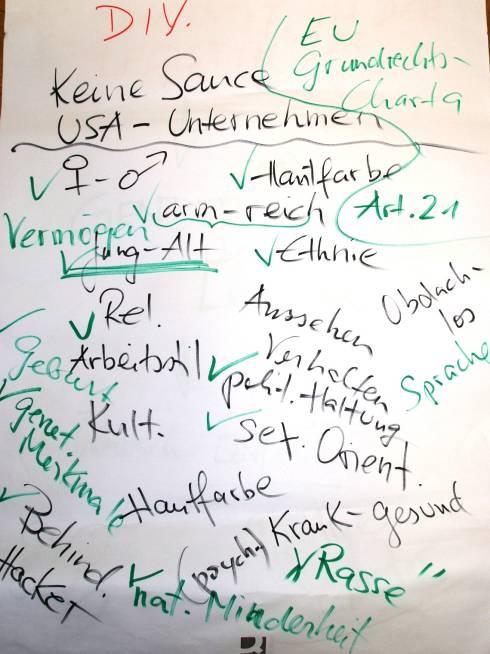 DIV.
EU
Grundrechts-
Charta
Keine Sauce
USA - Unternehmen
Art. 21
✓ ♀ - ♂
✓ Hautfarbe
Vermögen
✓ arm - reich
✓ Jung - Alt
✓ Ethnie
✓ Rel.
Aussehen
Obdach-
los
Geburt
Arbeitstil
✓ Verhalten
Sprache
✓ genet.
Merkmale
Kult.
polit. Haltung
✓ sex. Orient.
Hautfarbe
✓ Behind.
(psych.) Krank - gesund
Hacker
✓ "Rasse"
✓ nat. Minderheit